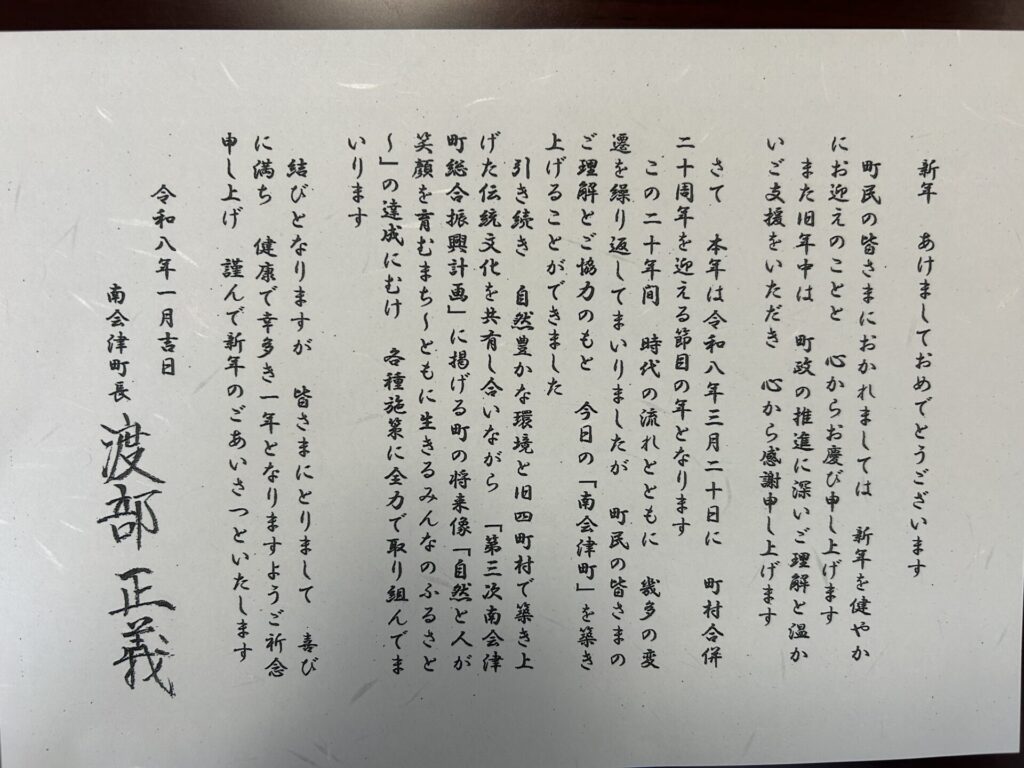 新年　あけましておめでとうございます
町民の皆さまにおかれましては　新年を健やか
にお迎えのことと　心からお慶び申し上げます
また旧年中は　町政の推進に深いご理解と温か
いご支援をいただき　心から感謝申し上げます
さて　本年は令和八年三月二十日に　町村合併
二十周年を迎える節目の年となります
この二十年間　時代の流れとともに　幾多の変
遷を繰り返してまいりましたが　町民の皆さまの
ご理解とご協力のもと　今日の「南会津町」を築き
上げることができました
引き続き　自然豊かな環境と旧四町村で築き上
げた伝統文化を共有し合いながら　「第三次南会津
町総合振興計画」に掲げる町の将来像「自然と人が
笑顔を育むまち～ともに生きるみんなのふるさと
～」の達成にむけ　各種施策に全力で取り組んでま
いります
結びとなりますが　皆さまにとりまして　喜び
に満ち　健康で幸多き一年となりますようご祈念
申し上げ　謹んで新年のごあいさつといたします
令和八年一月吉日
南会津町長　渡部　正義